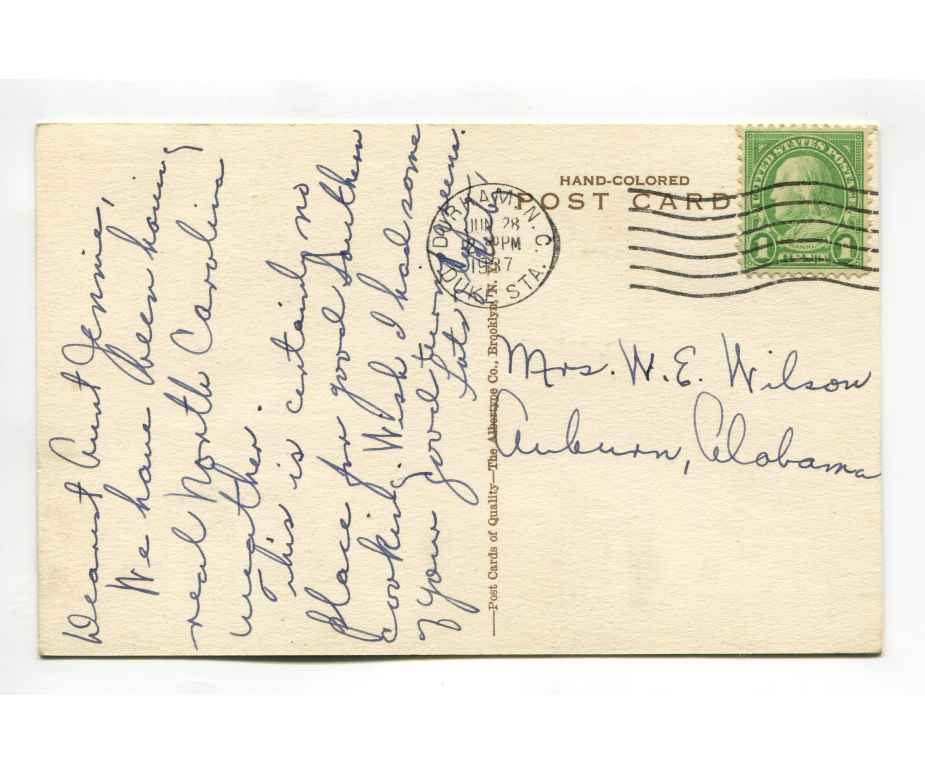 Dearest Aunt Jennie,
We have been having
real North Carolina
weather.
This is certainly no
place for good Southern
cookin'. Wish I had some
of your good turnip greens.
Lots
HAND-COLORED
POST CARD
DURHAM, N.C.
JUN 28
PM
1937
DUKE STA.
UNITED STATES POSTAGE
1 1
Mrs. W. E. Wilson
Auburn, Alabama
—Post Cards of Quality—The Albertype Co., Brooklyn, N.